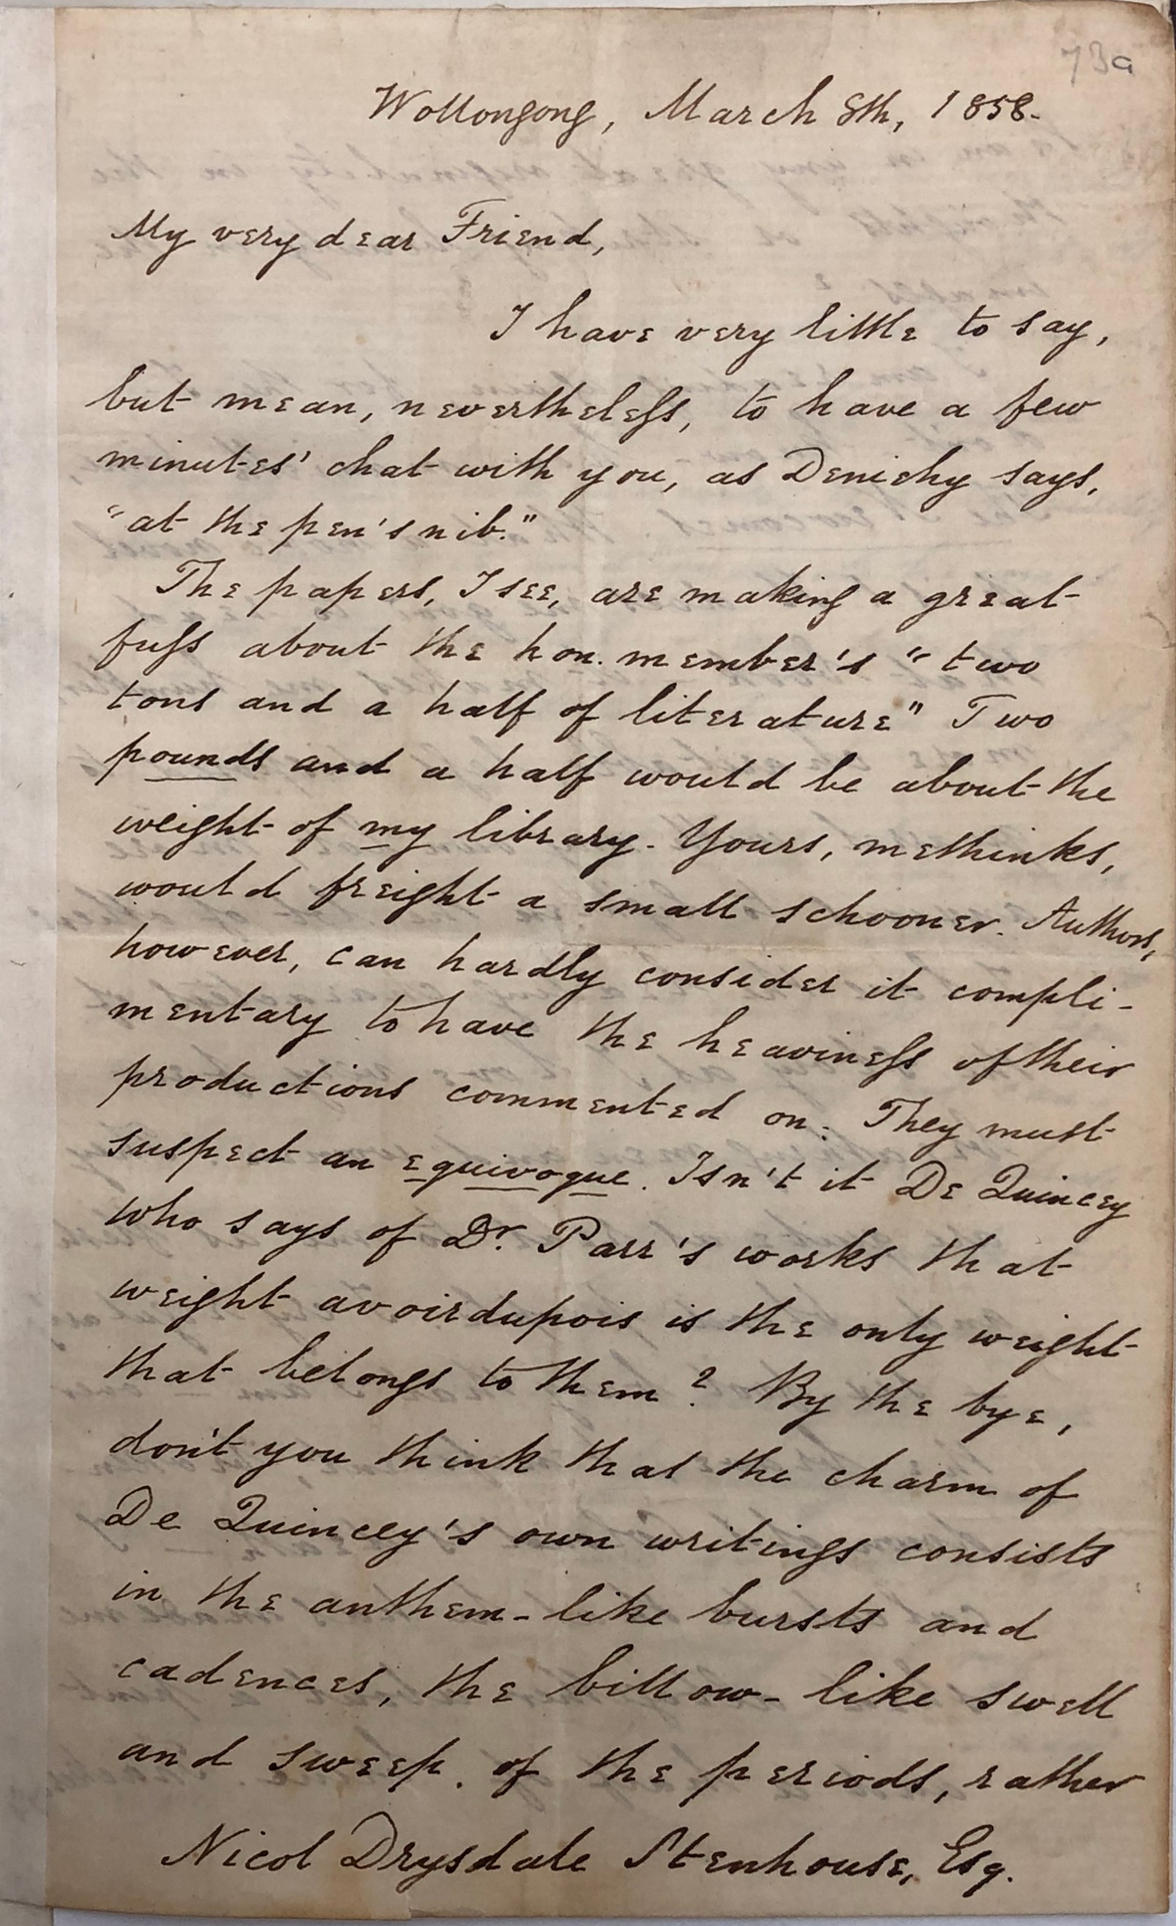 73a
Wollongong, March 8th, 1858.
My very dear Friend,
I have very little to say,
but mean, nevertheless, to have a few
minutes' chat with you, as Deniehy says,
"at the pen's nib."
The papers, I see, are making a great
fuss about the hon. member's "two
tons and a half of literature" Two
pounds and a half would be about the
weight of my library. Yours, methinks,
would freight a small schooner. Authors,
however, can hardly consider it compli-
mentary to have the heaviness of their
productions commented on. They must
suspect an equivoque. Isn't it De Quincey
who says of Dr. Parr's works that
weight avoirdupois is the only weight
that belongs to them? By the bye,
don't you think that the charm of
De Quincey's own writings consists
in the anthem-like bursts and
cadences, the billow-like swell
and sweep of the periods, rather
Nicol Drysdale Stenhouse, Esq.